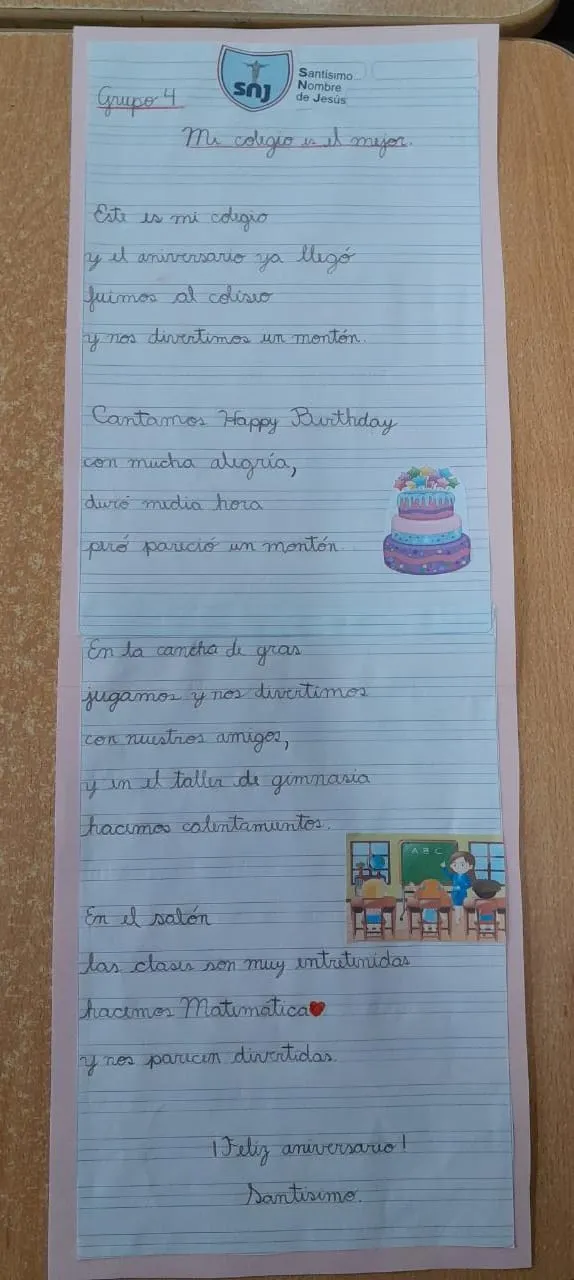 SNJ
Santísimo
Nombre
de Jesús
Grupo 4
Mi colegio es el mejor.
Este es mi colegio
y el aniversario ya llegó
fuimos al coliseo
y nos divertimos un montón.
Cantamos Happy Birthday
con mucha alegría,
duró media hora
peró pareció un montón.
En la cancha de gras
jugamos y nos divertimos
con nuestros amigos,
y en el taller de gimnasia
hacemos calentamientos.
A B C
En el salón
las clases son muy entretenidas
hacemos Matemática
y nos parecen divertidas.
¡Feliz aniversario!
Santisimo.